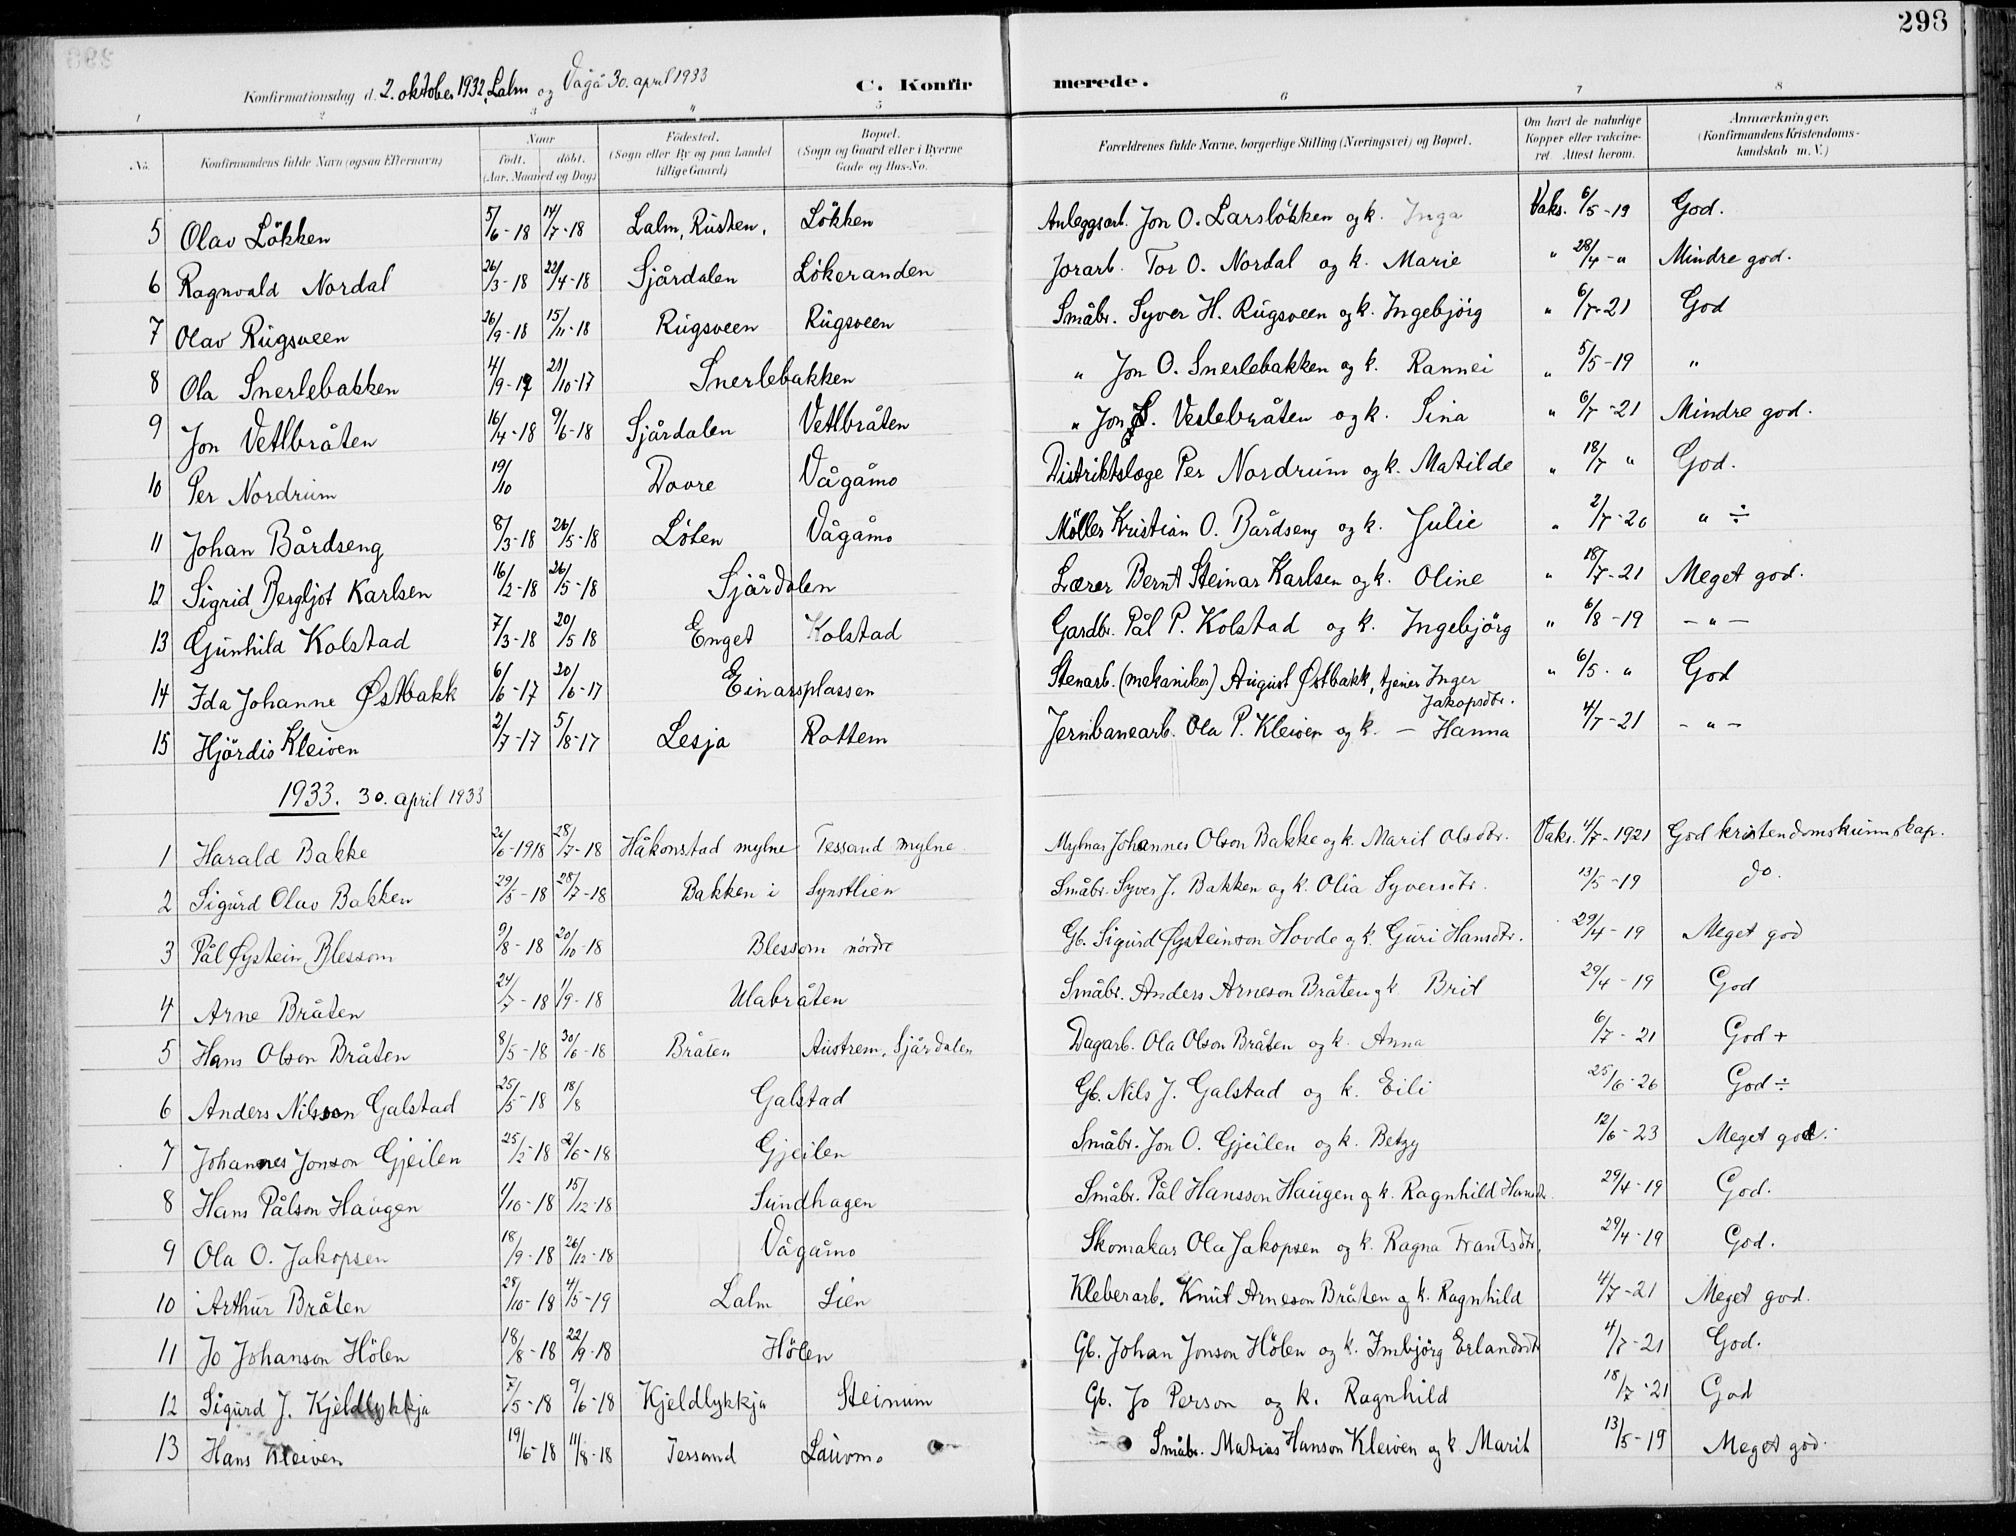 298
Konfirmationsdag d. 2. oktober 1932, Lalm og Vågå 30. april 1933 C. Konfirmerede.
1 2 3 4 5 6 7 8
No. Konfirmandens fulde Navn (ogsaa Efternavn) Naar født. døbt. (Aar, Maaned og Dag) Fødested. (Sogn eller By og paa Landet tillige Gaard) Bopæl. (Sogn og Gaard eller i Byerne Gade og Hus-No. Forældrenes fulde Navne, borgerlige Stilling (Næringsvei) og Bopæl. Om havt de naturlige Kopper eller vakcineret. Attest herom. Anmærkninger. (Konfirmandens Kristendomskundskab m. V.)
5 Olav Lökken 5/6-18 14/7-18 Lalm, Rusten, Lökken Anleggsarb. Jon O. Larslökken og k. Inga Vaks. 6/5-19 God.
6 Ragnvald Nordal 26/3-18 22/4-18 Sjårdalen Lökeranden Jorarb. Tor O. Nordal og k. Marie " 28/4-" Mindre god.
7 Olav Rugsveen 26/9-18 15/11-18 Rugsveen Rugsveen Småbr. Syver H. Rugsveen og k. Ingebjörg " 6/7-21 God
8 Ola Snerlebakken 4/9-17 21/10-17 Snerlebakken " Jon O. Snerlebakken og k. Rannei " 5/5-19 "
9 Jon Vetlbråten 16/4-18 9/6-18 Sjårdalen Vetlbråten " Jon S. Veslebråten og k. Sina " 6/7-21 Mindre god.
10 Per Nordrum 19/10 Dovre Vågåmo Distriktslæge Per Nordrum og k. Matilde " 18/7 " God.
11 Johan Bårdseng 8/3-18 26/5-18 Löten Vågåmo Möller Kristian O. Bårdseng og k. Julie " 2/7-20 " ÷
12 Sigrid Bergljot Karlsen 16/2-18 26/5-18 Sjårdalen Lærer Bernt Steinar Karlsen og k. Oline " 18/7-21 Meget god.
13 Gunhild Kolstad 7/3-18 20/5 18 Enget Kolstad Gardbr. Pål P. Kolstad og k. Ingebjörg " 6/8-19 - " -
14 Ida Johanne Østbakk 6/6-17 20/6-17 Einarsplassen Stenarb. (mekaniker) August Østbakk, tjener Inger Jakopsdtr. " 6/5. " God
15 Hjördis Kleiven 2/7-17 5/8-17 Lesja Rottem Jernbanearb. Ola P. Kleiven og k. - Hanna 4/7-21 - " -
1933. 30. april 1933
1 Harald Bakke 26/6-1918 28/7-18 Håkonstad mylne Tessand mylne Mylnar Johannes Olson Bakke og k. Marit Olsdtr. Vaks. 4/7-1921 God kristendomskunnskap.
2 Sigurd Olav Bakken 29/5-18 28/7-18 Bakken i Synstlien Småbr. Syver J. Bakken og k. Olia Syversdtr. 13/5-19 do.
3 Pål Øystein Blessom 9/8-18 20/10-18 Blessom nördre Gb. Sigurd Øysteinson Hovde og k. Guri Hansdtr. 29/4-19 Meget god
4 Arne Bråten 24/7-18 1/9-18 Ulabråten Småbr. Anders Arneson Bråten og k Brit 29/4-19 God
5 Hans Olson Bråten 8/5-18 30/6-18 Bråten Austrem, Sjårdalen Dagarb. Ola Olson Bråten og k. Anna 6/7-21 God +
6 Anders Nilsson Galstad 25/5-18 18/8 Galstad Gb. Nils J. Galstad og k. Eili 25/6-26 God ÷
7 Johannes Jonson Gjeilen 25/2-18 2/6-18 Gjeilen Småbr. Jon O. Gjeilen og k. Betzy 12/6-23 Meget god.
8 Hans Pålson Haugen 1/10-18 15/12-18 Sundhagen Småbr. Pål Hansson Haugen og k. Ragnhild Hansdtr. 29/4-19 God.
9 Ola O. Jakopsen 18/9-18 26/12-18 Vågåmo Skomakar Ola Jakopsen og k. Ragna Frantsdtr. 29/4-19 God.
10 Arthur Bråten 28/10-18 4/5-19 Lalm Lien Kleberarb. Knut Arneson Bråten og k. Ragnhild 4/7-21 Meget god.
11 Jo Johanson Hölen 18/8-18 22/9-18 Hölen Gb. Johan Jonson Hölen og k. Imbjörg Erlandsdtr 4/7-21 God.
12 Sigurd J. Kjeldlykkja 7/5-18 9/6-18 Kjeldlykkja Steinum Gb. Jo Person og k. Ragnhild 18/7-21 God
13 Hans Kleiven 19/6-18 11/8-18 Tessand Lauvmo Småbr. Matias Hanson Kleiven og k. Marit 13/5-19 Meget god.